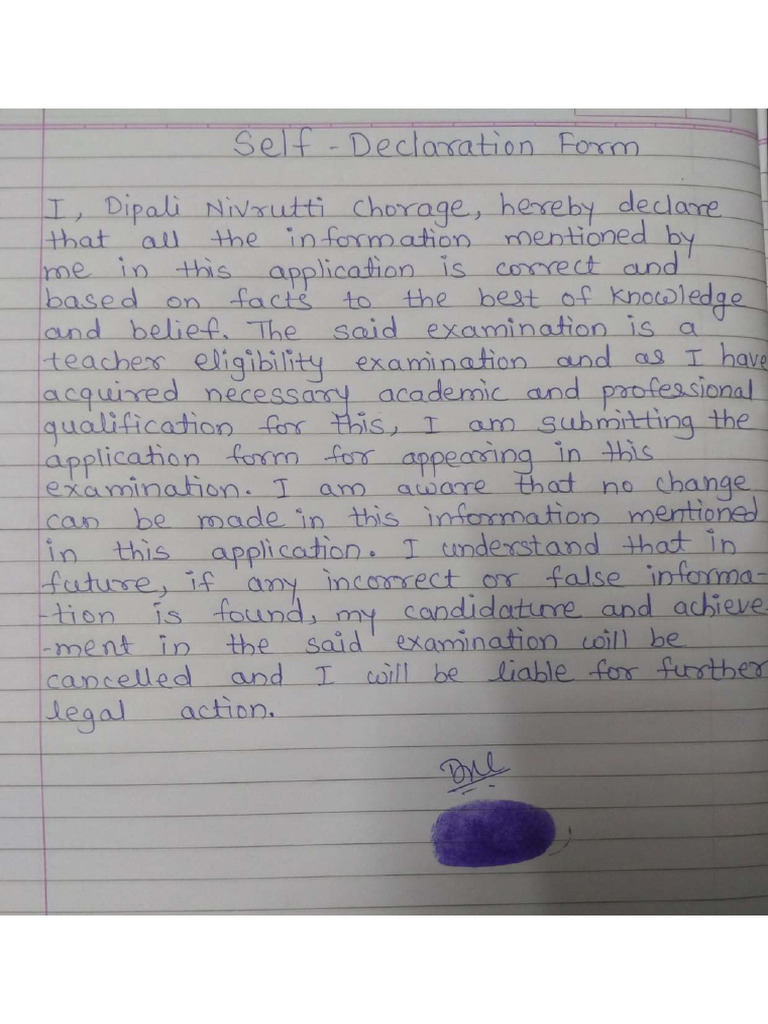 Self - Declaration Form
I, Dipali Nivrutti Chorage, hereby declare
that all the information mentioned by
me in this application is correct and
based on facts to the best of knowledge
and belief. The said examination is a
teacher eligibility examination and as I have
acquired necessary academic and professional
qualification for this, I am submitting the
application form for appearing in this
examination. I am aware that no change
can be made in this information mentioned
in this application. I understand that in
future, if any incorrect or false informa-
-tion is found, my candidature and achieve-
-ment in the said examination will be
cancelled and I will be liable for further
legal action.